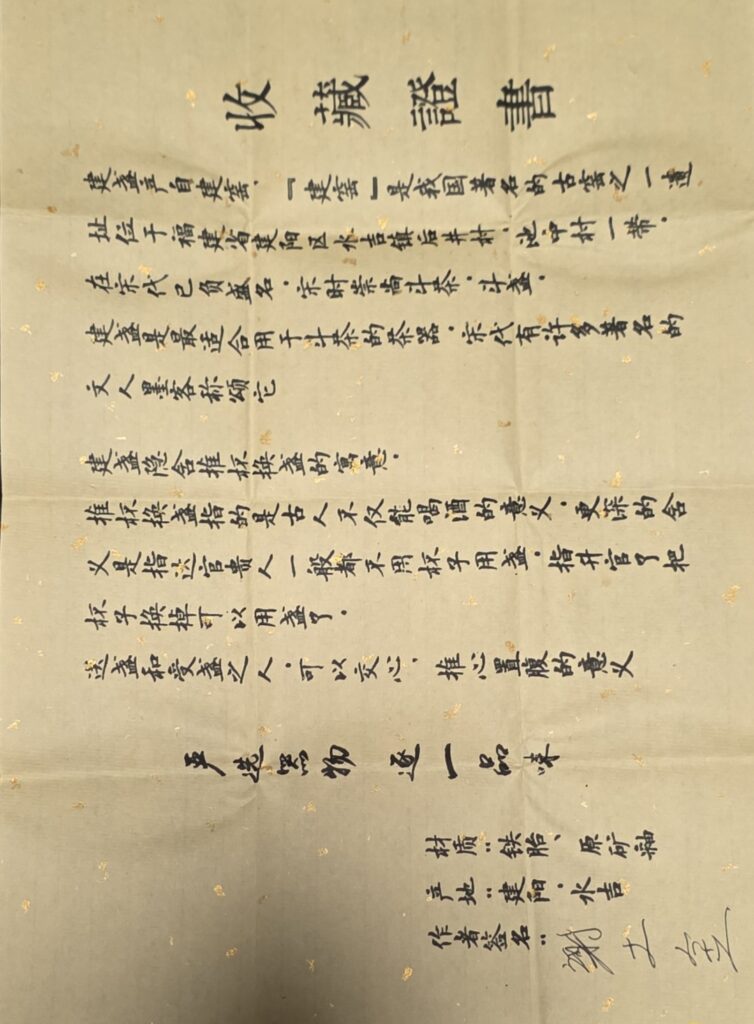 收藏證書
建盏产自建窑、『建窑』是我国著名的古窑之一遗
址位于福建省建阳区水吉镇后井村,池中村一带.
在宋代已负盛名.宋时崇尚斗茶.斗盏.
建盏是最适合用于斗茶的茶器.宋代有许多著名的
文人墨客称颂它
建盏隐含推杯换盏的寓意.
推杯换盏指的是古人不仅能喝酒的意义.更深的含
义是指达官贵人一般都不用杯子用盏.指升官了把
杯子换掉可以用盏了.
送盏和受盏之人.可以交心、推心置腹的意义
严选器物 逐一品味
材质:铁胎、原矿釉
产地:建阳·水吉
作者签名: